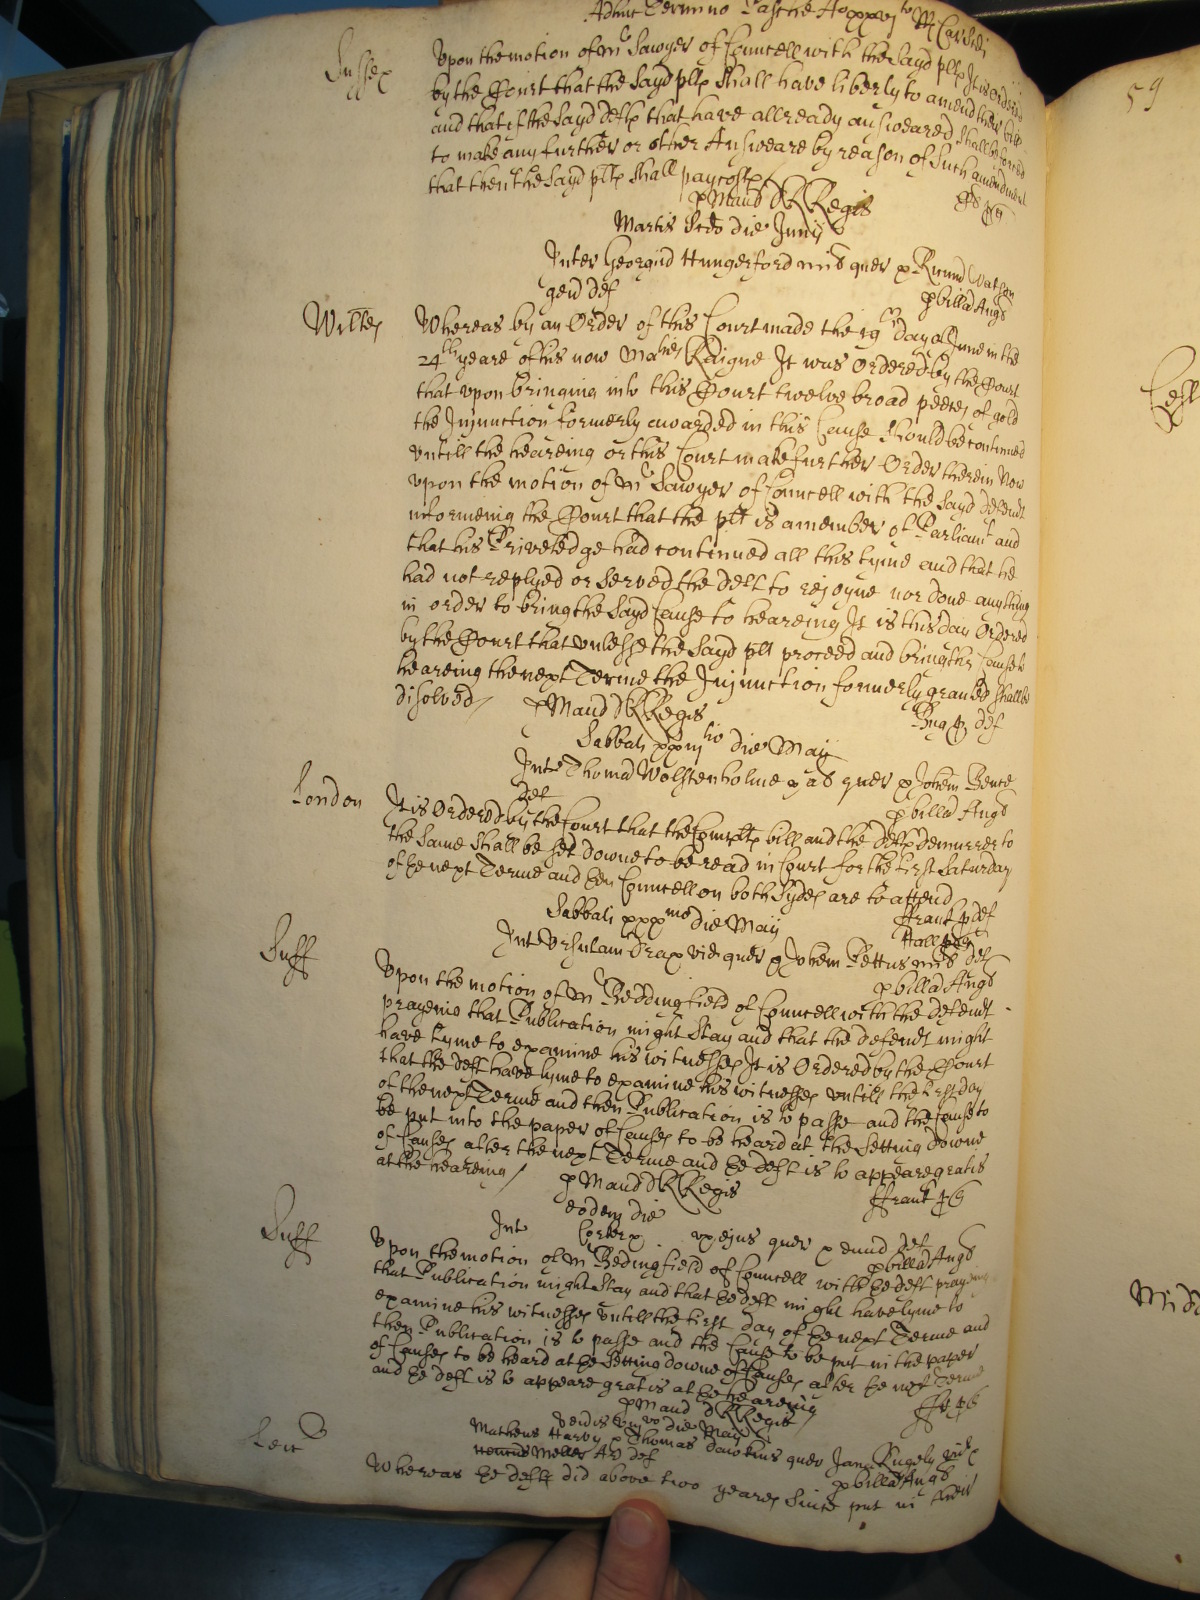 Adhuc Termino Pasche Ao xxvjto R Car Scdi
Sussex
Upon the motion of Mr Sawyer of Councell with the sayd plts It is ordered
by the Court that the sayd plts shall have liberty to amend their bill
and that if the sayd defts that have allready answeared shall be forced
to make any further or other Answeare by reason of such amendment
that then the sayd plts shall pay costs
p Maud R Regis
Martis Scdo die Junij
Inter Georgiu Hungerford mil quer p Rimund Watson
gen def
p billa Angl
Wiltes
Whereas by an Order of this Court made the 19th day of June in the
24th yeare of his now Maties Raigne It was Ordered by the Court
that upon bringing into this Court twelve broad peeces of gold
the Injunction formerly awarded in this Cause should be continued
untill the heareing or this Court make further Order therein Now
upon the motion of Mr Sawyer of Councell with the sayd defendt
informeing the Court that the plt is a member of Parliamt and
that his Priveledge had continued all this tyme and that he
had not replyed or served the deft to rejoyne nor done any thing
in order to bring the sayd Cause to heareing It is this day Ordered
by the Court that unlesse the sayd plt proceed and bring the Cause to
heareing the next Terme the Injunction formerly granted shall be
disolved
p Maud R Regis
Bug p def
Sabbati xxiijtio die Maij
Inter Thomā Wolstenholme quer p Johem Bence
def
p billa Angl
London
It is Ordered by the Court that the Complts bill and the defts demurrer to
the same shall be set downe to be read in Court for the first Saturday
of ye next Terme and then Councell on both sydes are to attend
Frank p def
Sabbati xxxmo die Maij
Hall p q
Inter Ursulam Drax vid quer p Johem Pettus mil def
p billa Angl
Suff
Upon the motion of Mr Beddingfield of Councell with the defendt
prayeing that Publication might stay and that the defendt might
have tyme to examine his witnesses It is Ordered by the Court
that the deft have tyme to examine his witnesses untill the first day
of the next Terme and then Publication is to passe and the Cause to
be put into the paper of Causes to be heard at the setting downe
of Causes after the next Terme and ye deft is to appeare gratis
at the heareing
p Maud R Regis
Frank p q
eodem die
Int ux ejus quer p eund def
p billa Angl
Suff
Upon the motion of Mr Bedingfield of Councell with ye deft praying
that Publication might stay and that ye deft might have tyme to
examine his witnesses untill the first day of ye next Terme and
then Publication is to passe and the Cause to be put in the paper
of Causes to be heard at ye setting downe of Causes after ye next Terme
and ye deft is to appeare gratis at ye heareing
p Maud R Regis
Fr p q
die Maij
Matheus Harby p Thomas Dawkins quer Jana Rugely vid
Ar def
p billa Angl
Whereas ye defts did above two yeares since put in their
59